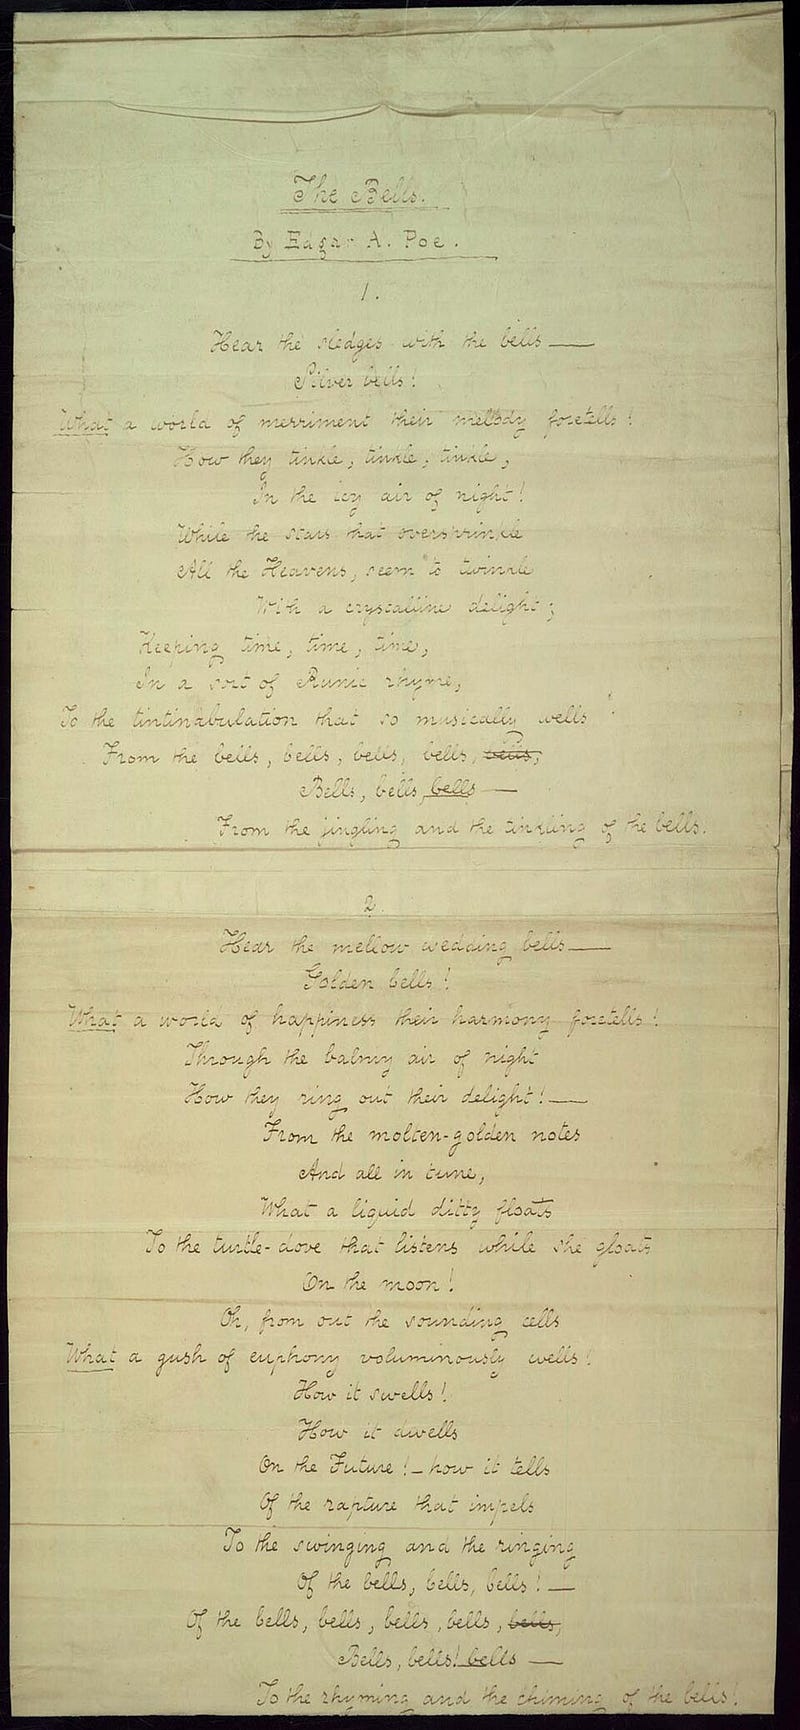 The Bells.
By Edgar A. Poe.
1.
Hear the sledges with the bells —
Silver bells!
What a world of merriment their melody foretells!
How they tinkle, tinkle, tinkle,
In the icy air of night!
While the stars that oversprinkle
All the Heavens, seem to twinkle
With a crystalline delight;
Keeping time, time, time,
In a sort of Runic rhyme,
To the tintinabulation that so musically wells
From the bells, bells, bells, bells, bells,
Bells, bells, bells —
From the jingling and the tinkling of the bells.
2.
Hear the mellow wedding bells —
Golden bells!
What a world of happiness their harmony foretells!
Through the balmy air of night
How they ring out their delight! —
From the molten-golden notes
And all in tune,
What a liquid ditty floats
To the turtle-dove that listens while she gloats
On the moon!
Oh, from out the sounding cells
What a gush of euphony voluminously wells!
How it swells!
How it dwells
On the Future! — how it tells
Of the rapture that impels
To the swinging and the ringing
Of the bells, bells, bells! —
Of the bells, bells, bells, bells, bells,
Bells, bells! bells —
To the rhyming and the chiming of the bells!